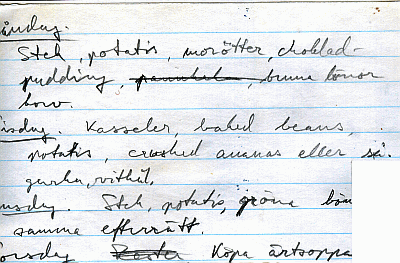 åndag.
Stek, potatis, morötter, choklad-
pudding, bruna bönor
korv.
isdag. Kasseler, baked beans,
potatis, crushed ananas eller
gurka, vitkål.
nsdag. Stek, potatis, gröna bön
samma efterrätt.
orsdag Köpa ärtsoppa